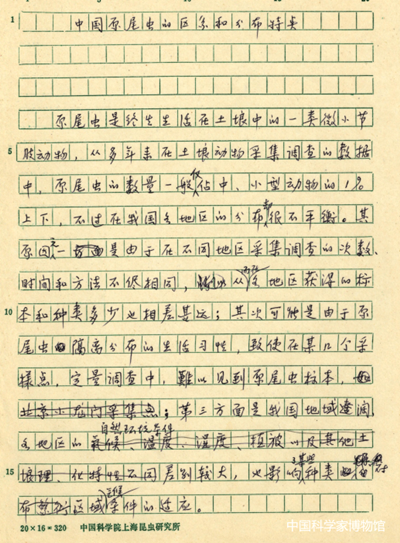 1
中国原尾虫的区系和分布特类
原尾虫是终生生活在土壤中的一类微小节
5
肢动物，从多年来在土壤动物采集调查的数据
中，原尾虫的数量一般仅占中、小型动物的1%
上下，不过在我国各地区的分布却很不平衡。其
原因之一是由于在不同地区采集调查的次数、
时间和方法不尽相同，从而各地区获得的标
10
本和种类多少也相差甚远；其次可能是由于原
尾虫隔离分布的生活习性，致使在某几个采
样点，定量调查中，难以见到原尾虫标本，如
北京小龙门采集点；第三方面是我国地域辽阔，
自然环境条件
各地区的气候、温度、湿度、植被以及其他土
15
壤理、化特性不同差别较大，也影响种类
布区域条件的适应。
20×16=320 中国科学院上海昆虫研究所
中国科学家博物馆